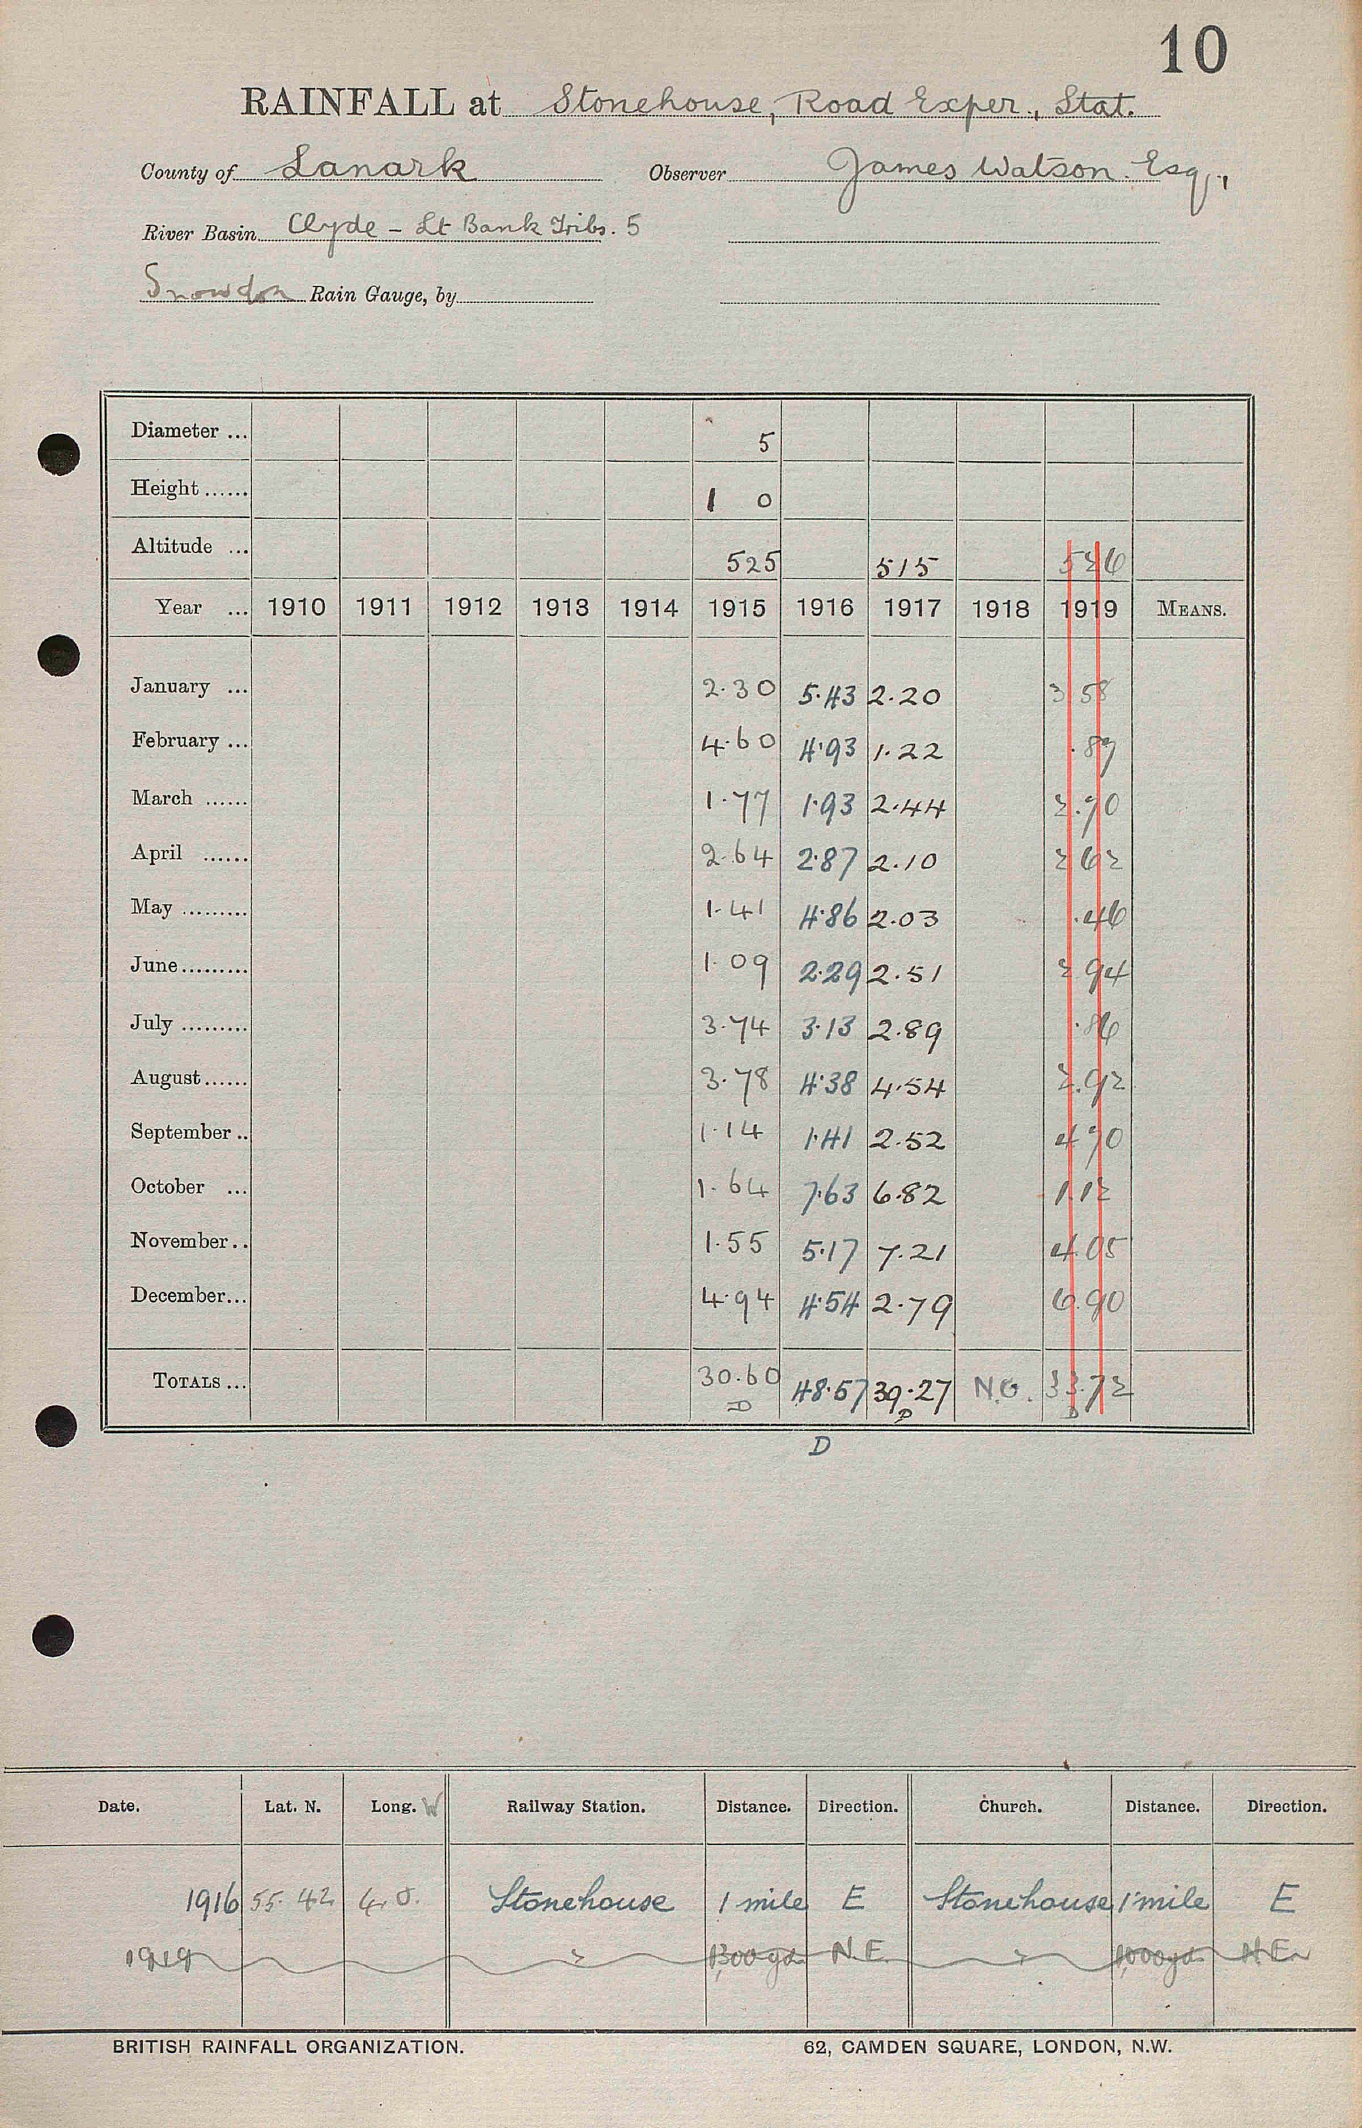 10
RAINFALL at Stonehouse, Road Exper., Stat.
County of Lanark Observer James Watson. Esq.,
River Basin Clyde - Lt Bank Tribs. 5
Snowdon Rain Gauge, by
Diameter ... 5
Height ...... 1 0
Altitude ... 525 515 526
Year ... 1910 1911 1912 1913 1914 1915 1916 1917 1918 1919 MEANS.
January ... 2.30 5.43 2.20 3.58
February ... 4.60 4.93 1.22 .89
March ...... 1.77 1.93 2.44 2.70
April ...... 2.64 2.87 2.10 2.62
May ......... 1.41 4.86 2.03 .46
June......... 1.09 2.29 2.51 2.94
July ......... 3.74 3.13 2.89 .86
August...... 3.78 4.38 4.54 2.92
September .. 1.14 1.41 2.52 4.70
October ... 1.64 7.63 6.82 1.12
November .. 1.55 5.17 7.21 4.05
December... 4.94 4.54 2.79 6.90
TOTALS ... 30.60 48.57 39.27 N.G. 33.72
D D D
D
Date. Lat. N. Long. W Railway Station. Distance. Direction. Church. Distance. Direction.
1916 55. 42 4. 0. Stonehouse 1 mile E Stonehouse 1 mile E
1919 " 1300 yds N.E. " 1000 yds N.E.
BRITISH RAINFALL ORGANIZATION. 62, CAMDEN SQUARE, LONDON, N.W.